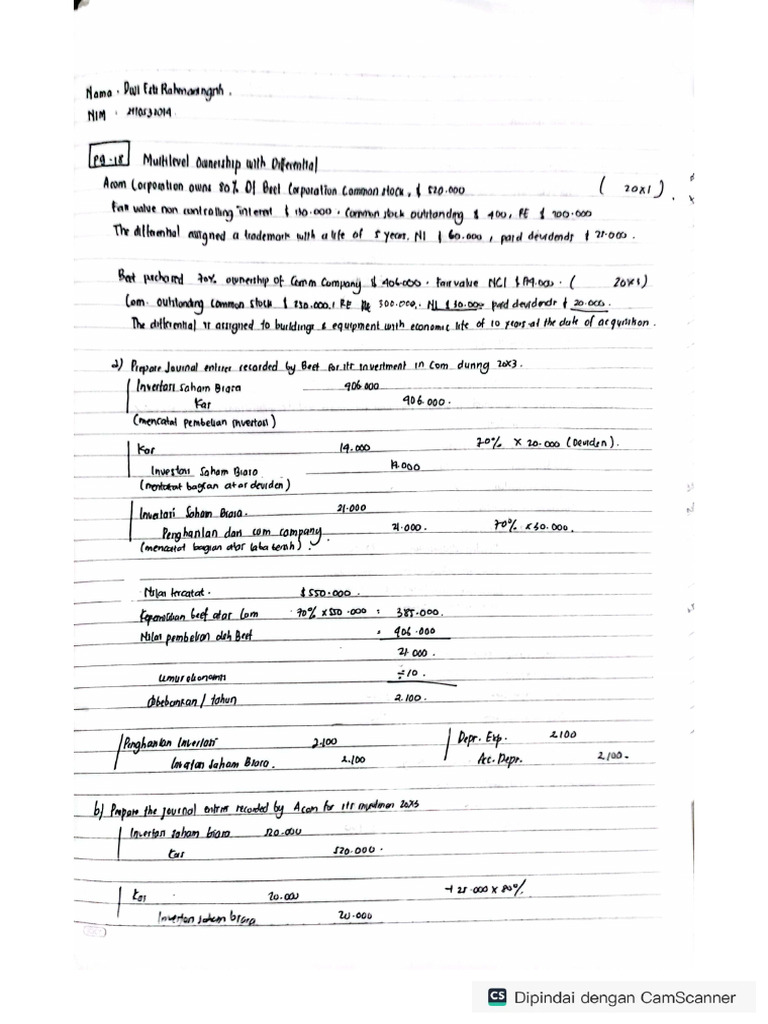 Nama . Dwi Esti Rahmaningsih .
NIM .
P9-18 Multilevel Ownership with Differential
Acom Corporation owns 80% Of Beet Corporation Common stock, $ 520.000 ( 20X1 ) .
Fair value non controlling interest $ 130.000 . Common stock outstanding $ 400, RE $ 200.000
The differential assigned a trademark with a life of 5 years, NI $ 60.000 , paid devidends $ 25.000 .
Beet purchased 70% ownership of Comm Company $ 406.000 . Fair value NCI $ 174.000 . ( 20X3 )
Com. outstanding common stock $ 250.000, RE 300.000, . NI $ 30.000 paid devidends $ 20.000 .
The differential is assigned to buildings & equipment with economic life of 10 years at the date of acquisition .
a) Prepare Journal entries recorded by Beet for its investment in Com during 20X3 .
Investasi Saham Biasa 406.000
Kas 406.000 .
(mencatat pembelian investasi)
Kas 14.000 70% X 20.000 (Deviden) .
Investasi Saham Biasa 14.000
(mencatat bagian atas deviden)
Investasi Saham Biasa . 21.000
Penghasilan dari com company . 21.000 . 70% X 30.000 .
(mencatat bagian atas laba bersih) .
Nilai tercatat . $ 550.000 .
Kepemilikan beet atas Com 70% X 550.000 : 385.000 .
Nilai pembelian oleh Beet : 406.000
21.000 .
Umur ekonomis ÷ 10 .
Dibebankan / tahun 2.100 .
Penghasilan Investasi 2.100 Depr. Exp. 2100
Investasi Saham Biasa . 2.100 Ac. Depr. 2100 .
b) Prepare the journal entries recorded by Acom for its investmen 20X3
Investasi saham biasa 520.000
Kas 520.000 .
Kas . 20.000 → 25.000 X 80%
Investasi saham biasa 20.000
CS Dipindai dengan CamScanner